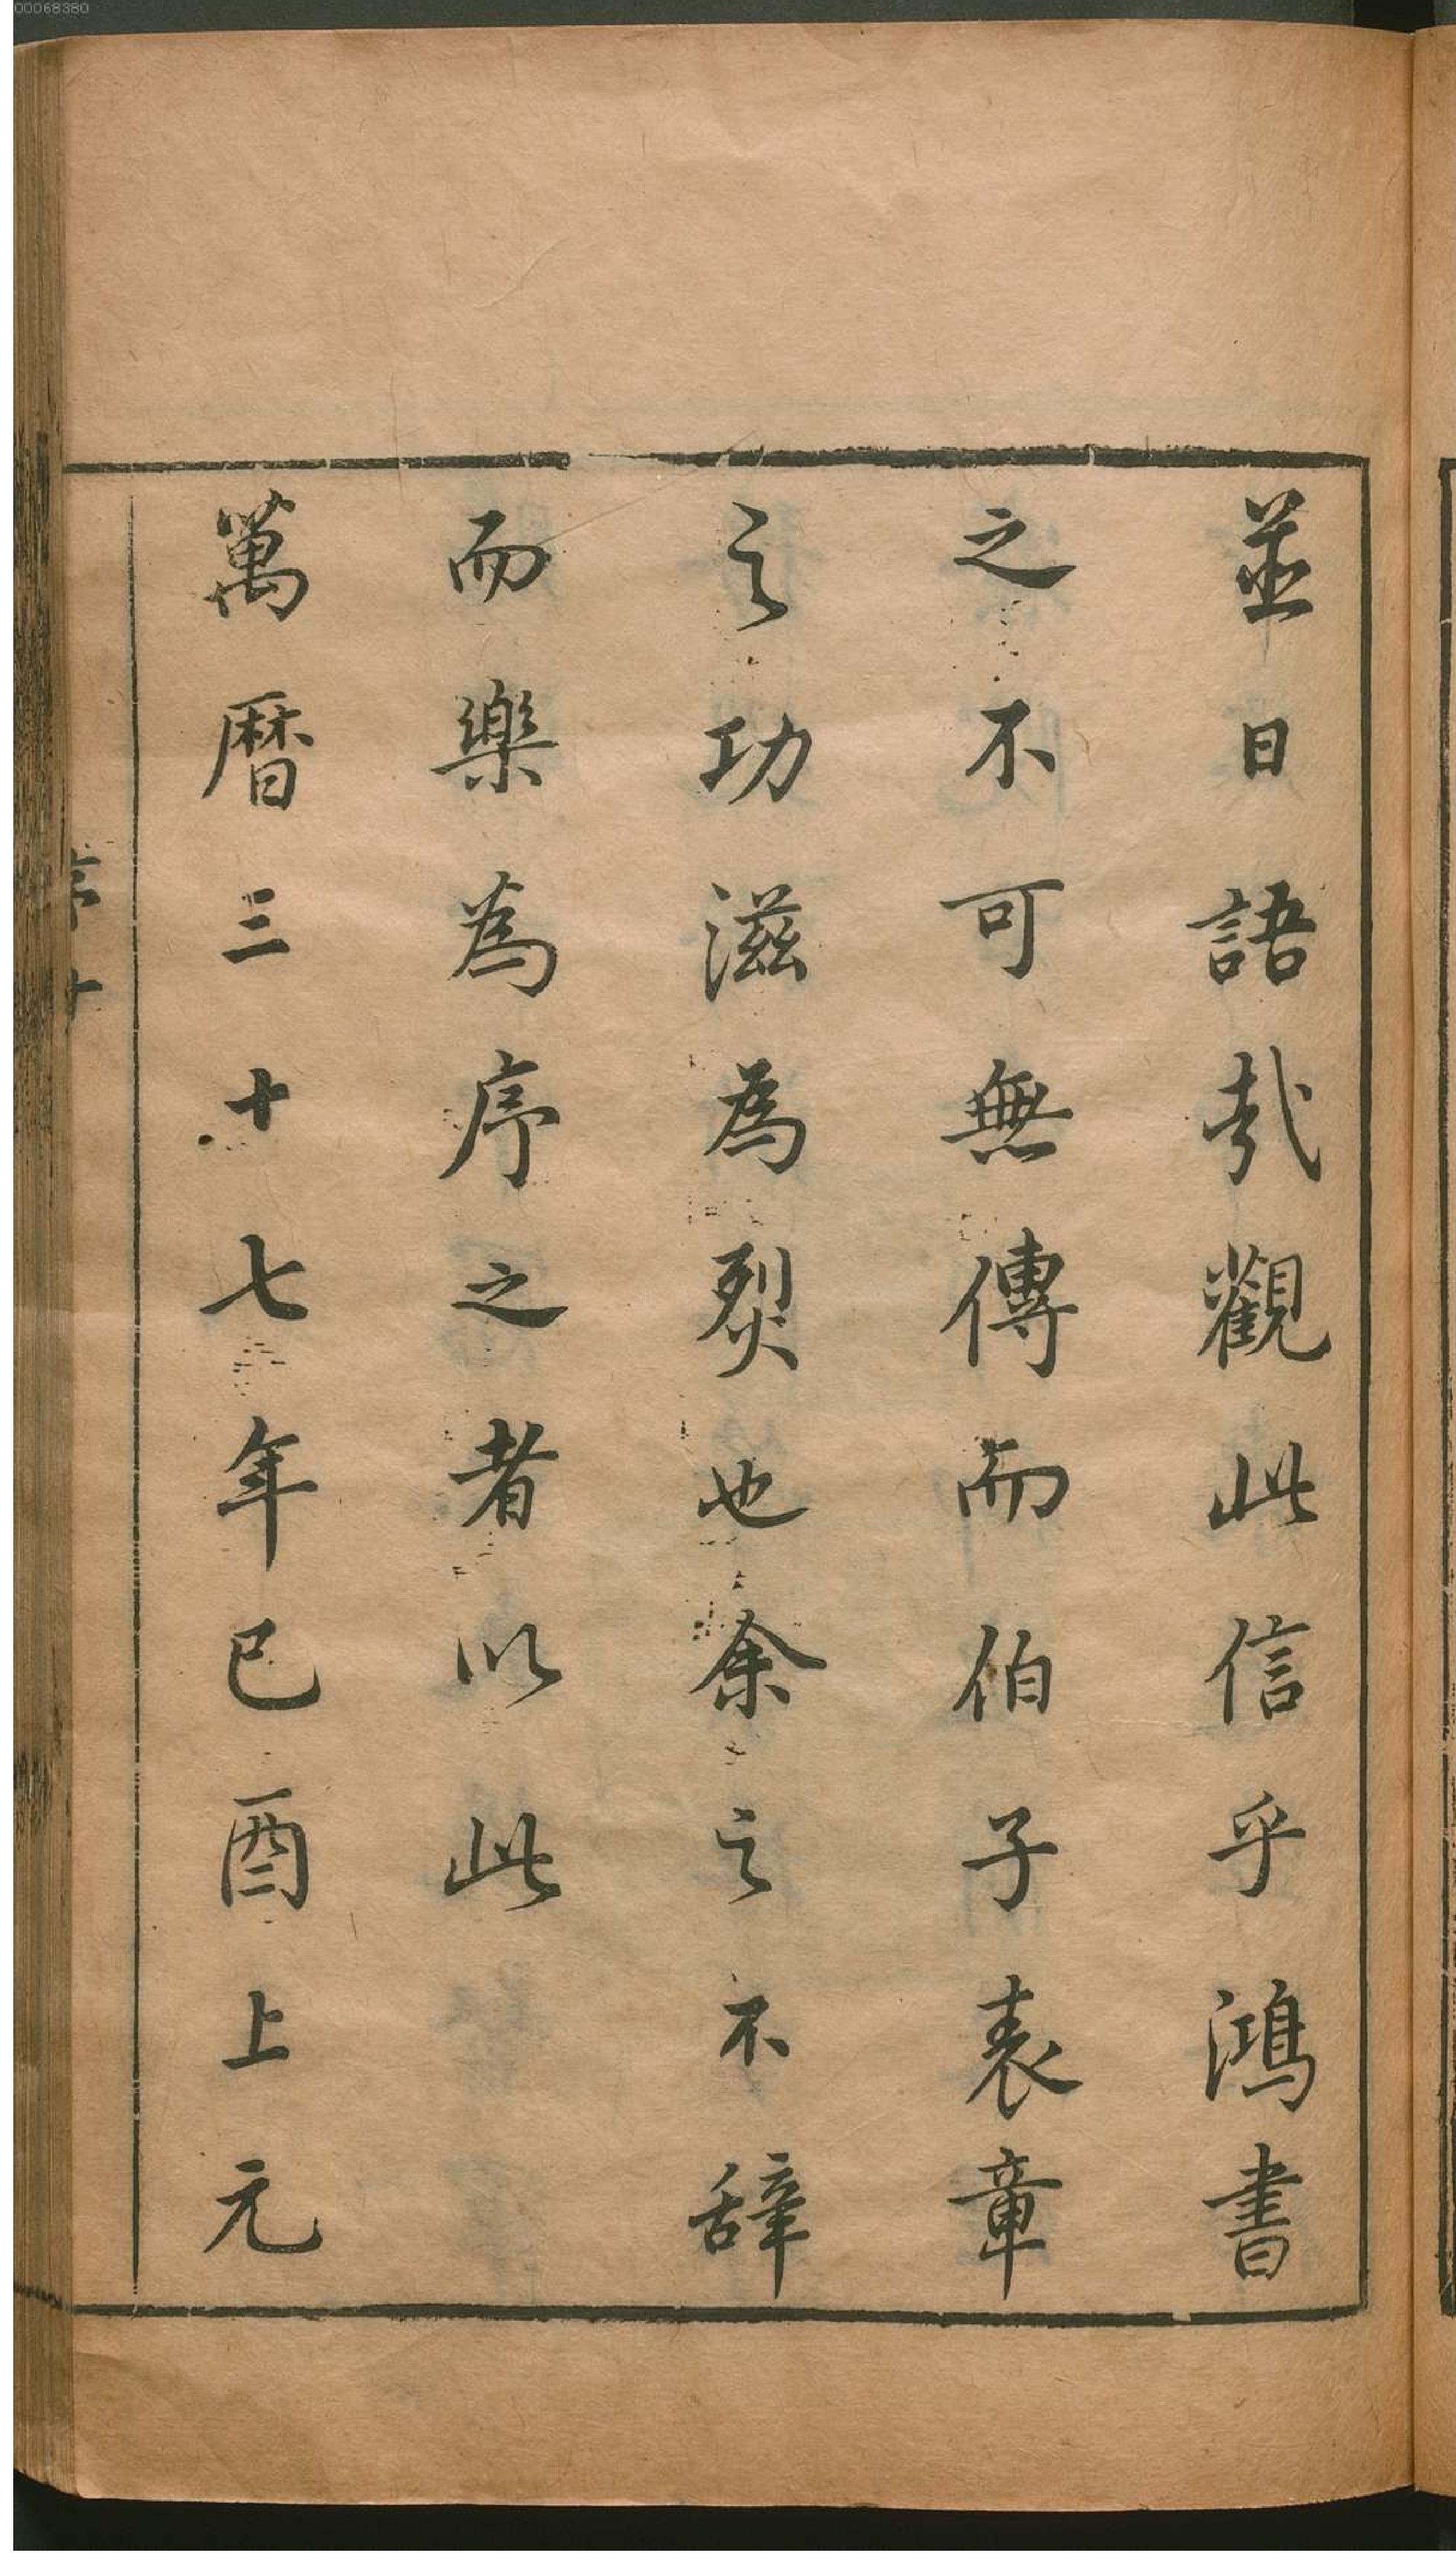 00068380
並日語㦲觀此信乎鴻書
之不可無傳而伯子表章
之功滋為烈也余之不辭
而樂為序之者以此
萬曆三十七年己酉上元